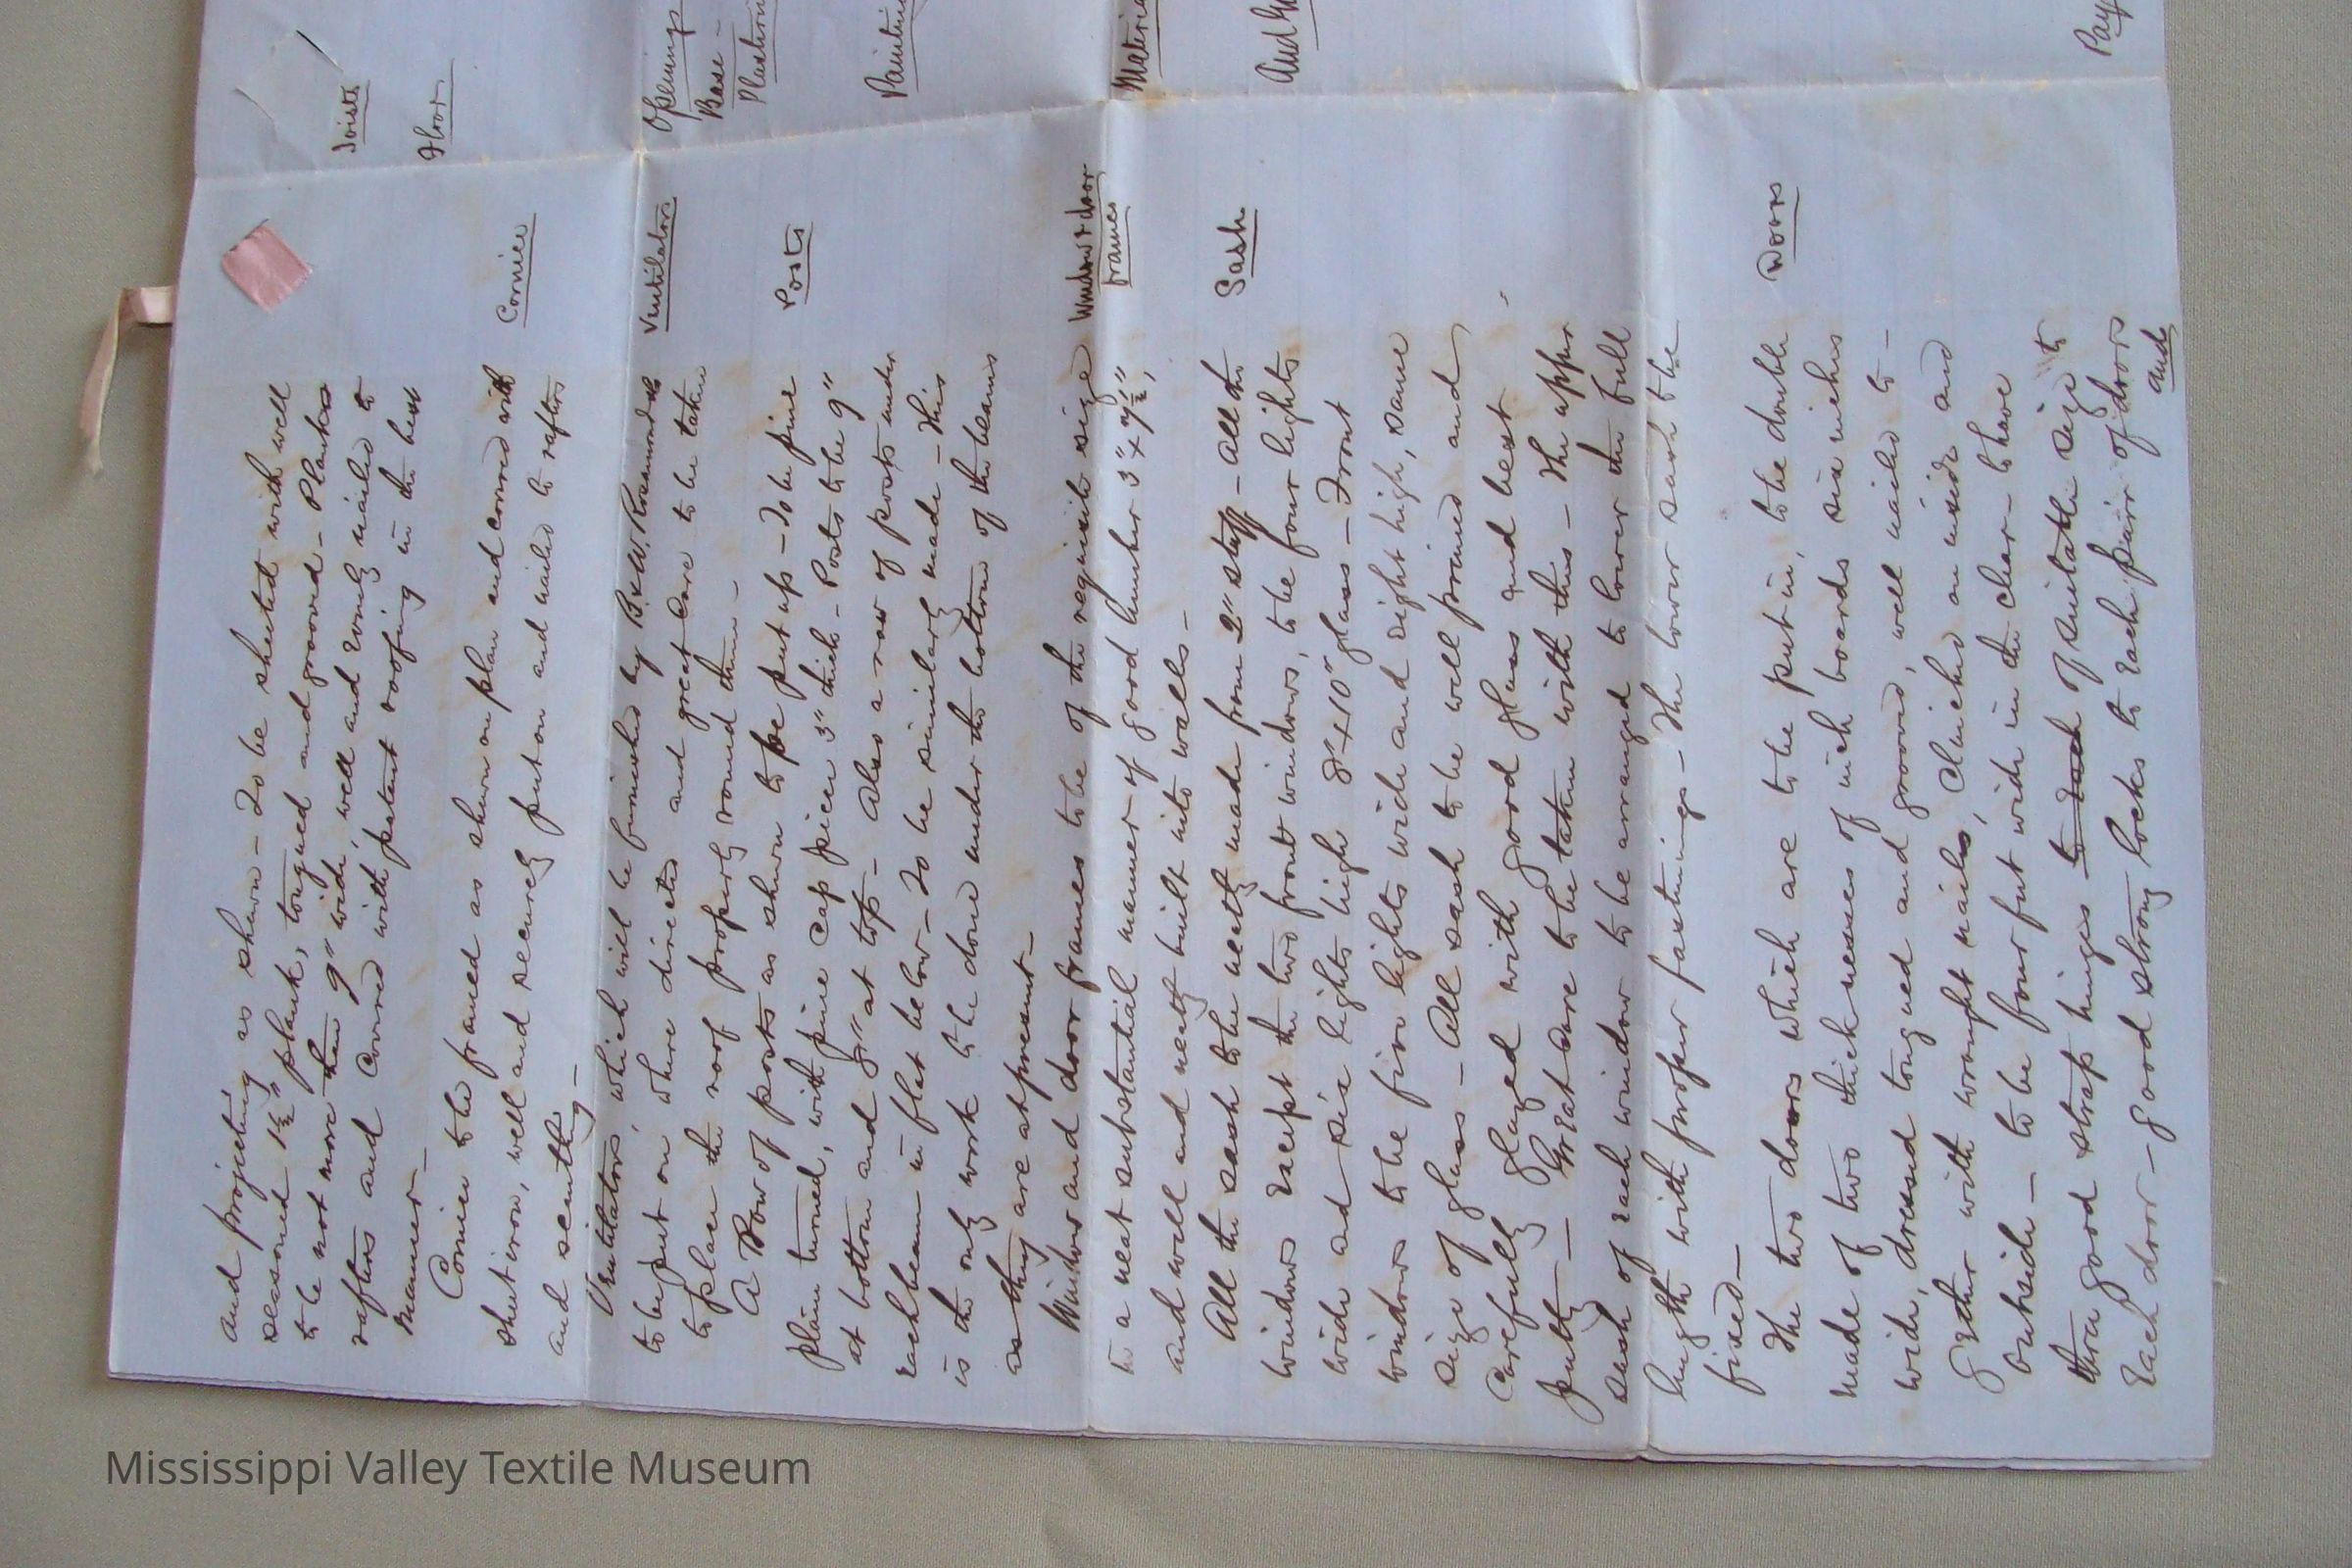 and projecting as shewn – To be sheeted with well
seasoned 1½" plank, tongued and grooved – Planks
to be not more than 9" wide, well and evenly nailed to
rafters and covered with patent roofing in the best
manner –
Cornice
Cornice to be framed as shewn on plan and covered with
sheet iron, well and securely put on and nailed to rafters
and scantling –
Ventilators
Ventilators, which will be furnished by B. & W. Rosamond to
to be put on where directed and great care to be taken
to place the roof properly round them –
Posts
A Row of posts as shewn to be put up – To be pine
plain turned, with pine cap pieces 3" thick – Posts to be 9"
at bottom and 8" at top – Also a row of posts under
each beam in flat below – To be similarly made – This
is the only work to be done under the bottom of the beams
as they are at present –
Window & door
frames
Window and door frames to be of the requisite size
in a neat substantial manner of good lumber 3" x 7½",
and well and neatly built into walls –
Sash
All the sash to be neatly made from 2" stuff – All the
windows except the two front windows, to be four lights
wide and six lights high 8" x 10" glass – Front
windows to be five lights wide and eight high, same
size of glass – All sash to be well primed and
carefully glazed with good glass and best
putty – Great care to be taken with this – The upper
sash of each window to be arranged to lower the full
length with proper fastenings – The lower sash to be
fixed –
Doors
The two doors which are to be put in, to be double
made of two thicknesses of inch boards six inches
wide, dressed tongued and grooved, well nailed to –
gether with wrought nails, clinched on inside and
outside – to be four feet wide in the clear – to have
three good strap hinges to each of suitable size to
each door – good strong locks to each pair of doors
and
Joists
Floor
Openings
Base –
Plastering
Painting
Materia
And Ge
Pay
Mississippi Valley Textile Museum